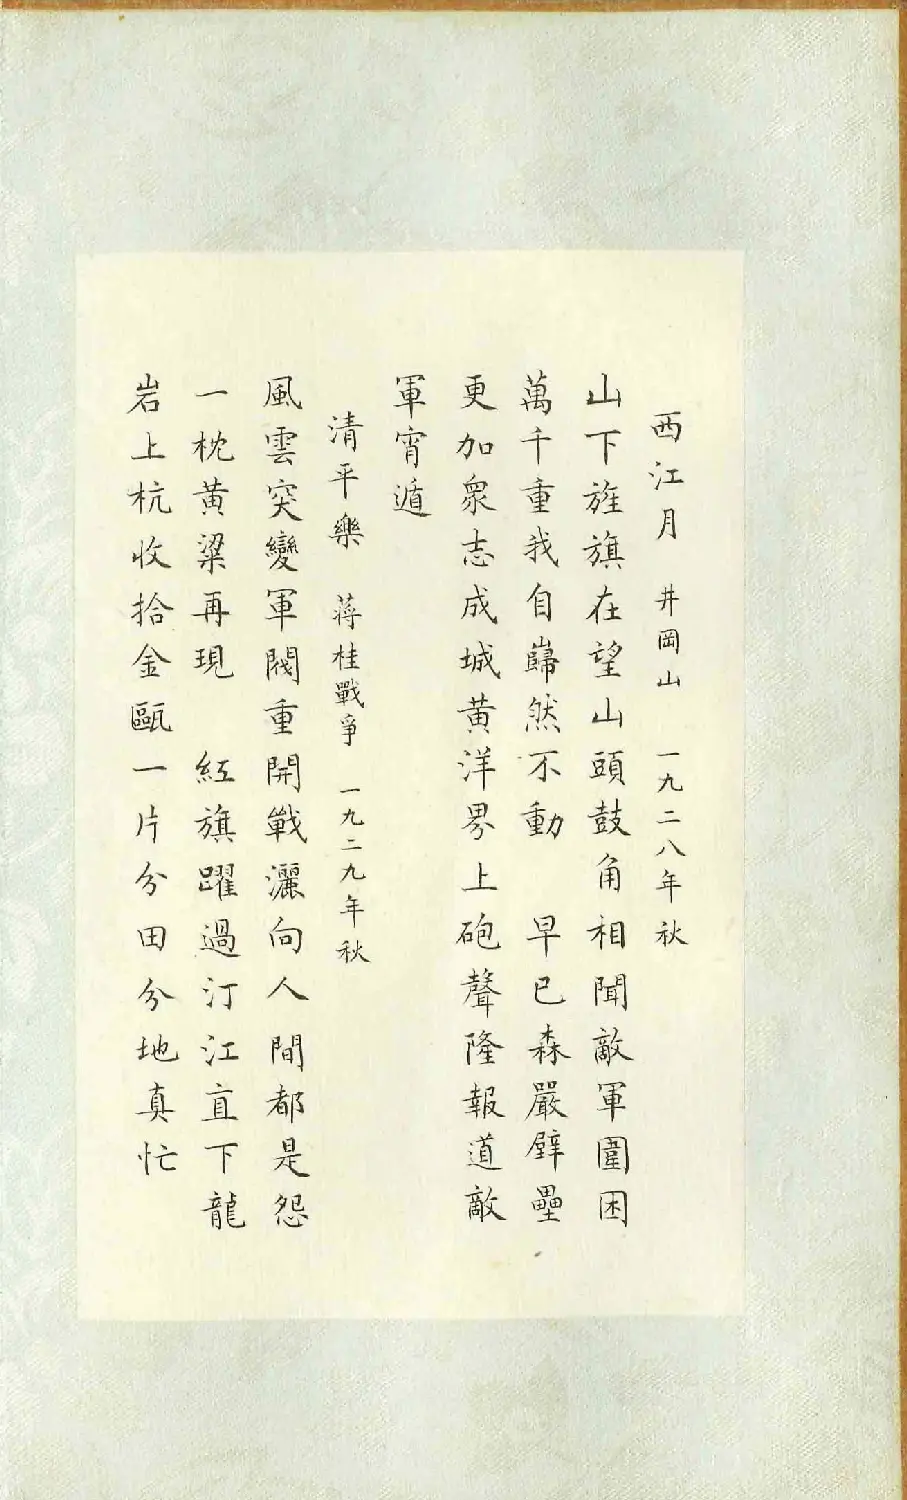 西江月 井岡山 一九二八年秋
山下旌旗在望山頭鼓角相聞敵軍圍困
萬千重我自巋然不動 早已森嚴壁壘
更加衆志成城黃洋界上砲聲隆報道敵
軍宵遁
清平樂 蔣桂戰爭 一九二九年秋
風雲突變軍閥重開戰灑向人間都是怨
一枕黃粱再現 紅旗躍過汀江直下龍
岩上杭收拾金甌一片分田分地真忙